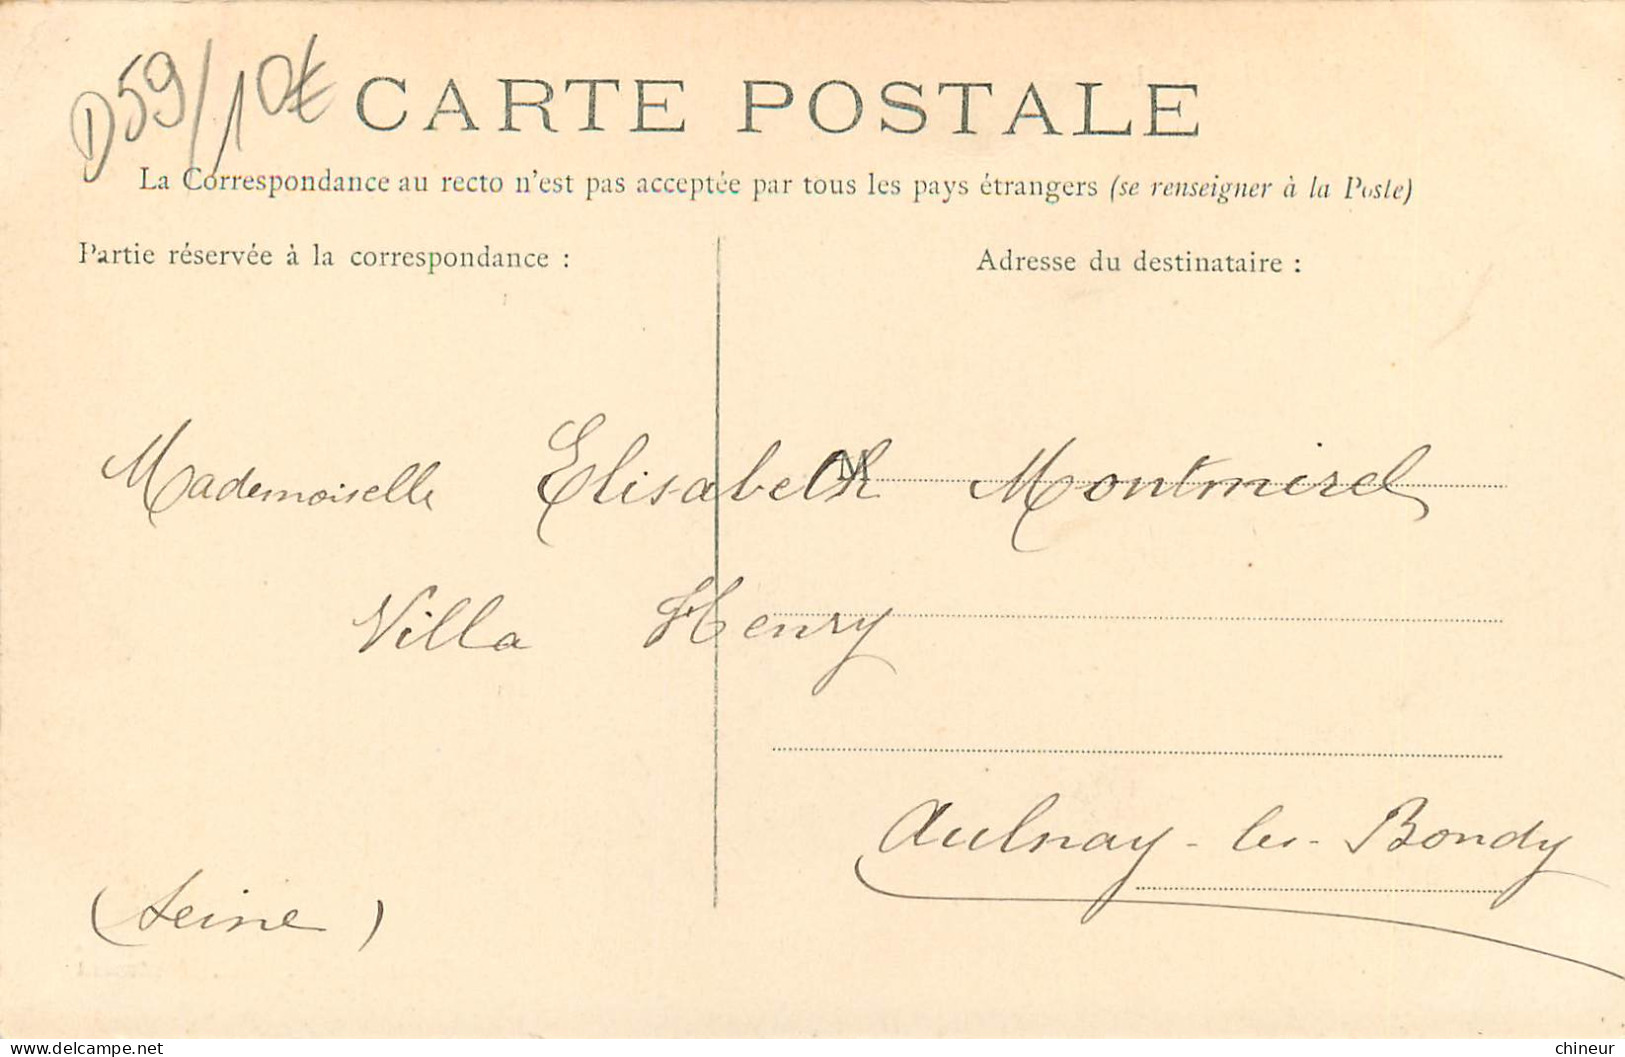 D59/10€
CARTE POSTALE
La Correspondance au recto n'est pas acceptée par tous les pays étrangers (se renseigner à la Poste)
Partie réservée à la correspondance :
Adresse du destinataire :
M
Mademoiselle Elisabeth Montmirel
Villa Henry
Aulnay-les-Bondy
(Seine)
chineur